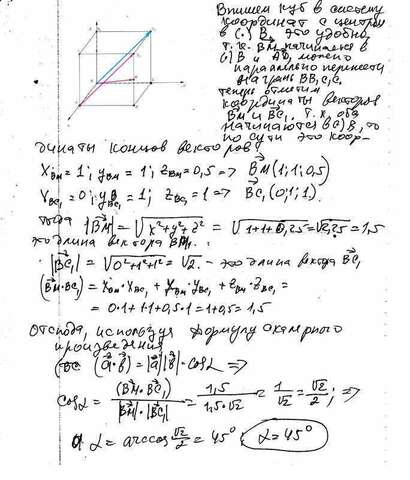 Впишем куб в систему
координат с центром
в (.) B. Это удобно,
т.к. BM начинается в
(.) B и AD, можно
параллельно перенести
на грань BB₁C₁C.
теперь отметим
координаты векторов
BM и BC₁. Т.к. оба
начинаются в (.) B, то
по сути это коор-
динаты концов векторов:
X_BM = 1; y_BM = 1; z_BM = 0,5 => BM (1; 1; 0,5)
X_BC₁ = 0; y_BC₁ = 1; z_BC₁ = 1 => BC₁ (0; 1; 1).
тогда |BM| = √x²+y²+z² = √1+1+0,25 = √2,25 = 1,5
это длина вектора BM.
|BC₁| = √0²+1²+1² = √2. – это длина вектора BC₁
(BM·BC₁) = X_BM·X_BC₁ + y_BM·y_BC₁ + z_BM·z_BC₁ =
= 0·1+1·1+0,5·1 = 1+0,5 = 1,5
Отсюда, используя формулу скалярного
произведения
(a·b) = |a||b|·cosα =>
cosα = (BM·BC₁) / |BM|·|BC₁| = 1,5 / 1,5·√2 = 1/√2 = √2/2; =>
α = arccos √2/2 = 45° α = 45°